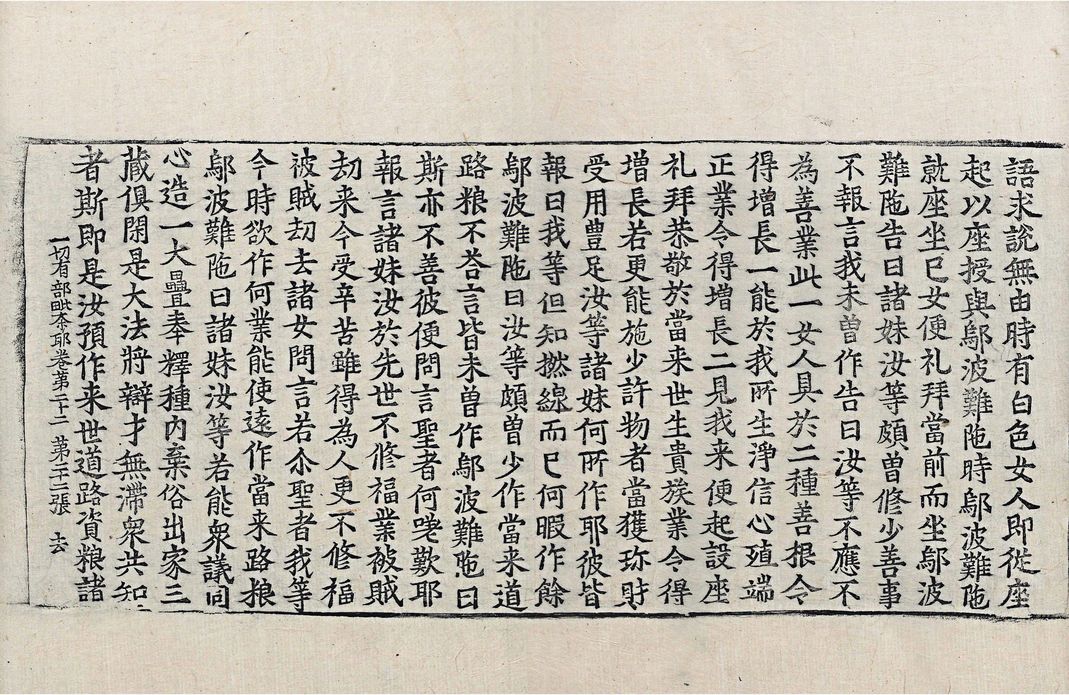 語求說無由時有白色女人即從座
起以座授與鄔波難陁時鄔波難陁
就座坐已女便礼拜當前而坐鄔波
難陁告曰諸妹汝等頗曾修少善事
不報言我未曾作告曰汝等不應不
為善業此一女人具於二種善根令
得增長一能於我所生淨信心殖端
正業令得增長二見我来便起設座
礼拜恭敬於當来世生貴族業令得
增長若更能施少許物者當獲珎財
受用豊足汝等諸妹何所作耶彼皆
報曰我等但知撚線而已何暇作餘
鄔波難陁曰汝等頗曾少作當来道
路粮不荅言皆未曾作鄔波難陁曰
斯亦不善彼便問言聖者何嗟歎耶
報言諸妹汝於先世不修福業被賊
劫来今受辛苦雖得為人更不修福
被賊劫去諸女問言若尒聖者我等
今時欲作何業能使遠作當来路粮
鄔波難陁曰諸妹汝等若能衆議同
心造一大疊奉釋種內棄俗出家三
藏俱閑是大法將辯才無滯衆共知
者斯即是汝預作来世道路資粮諸
一切有部毗奈耶卷第二十二 第二十二張 去